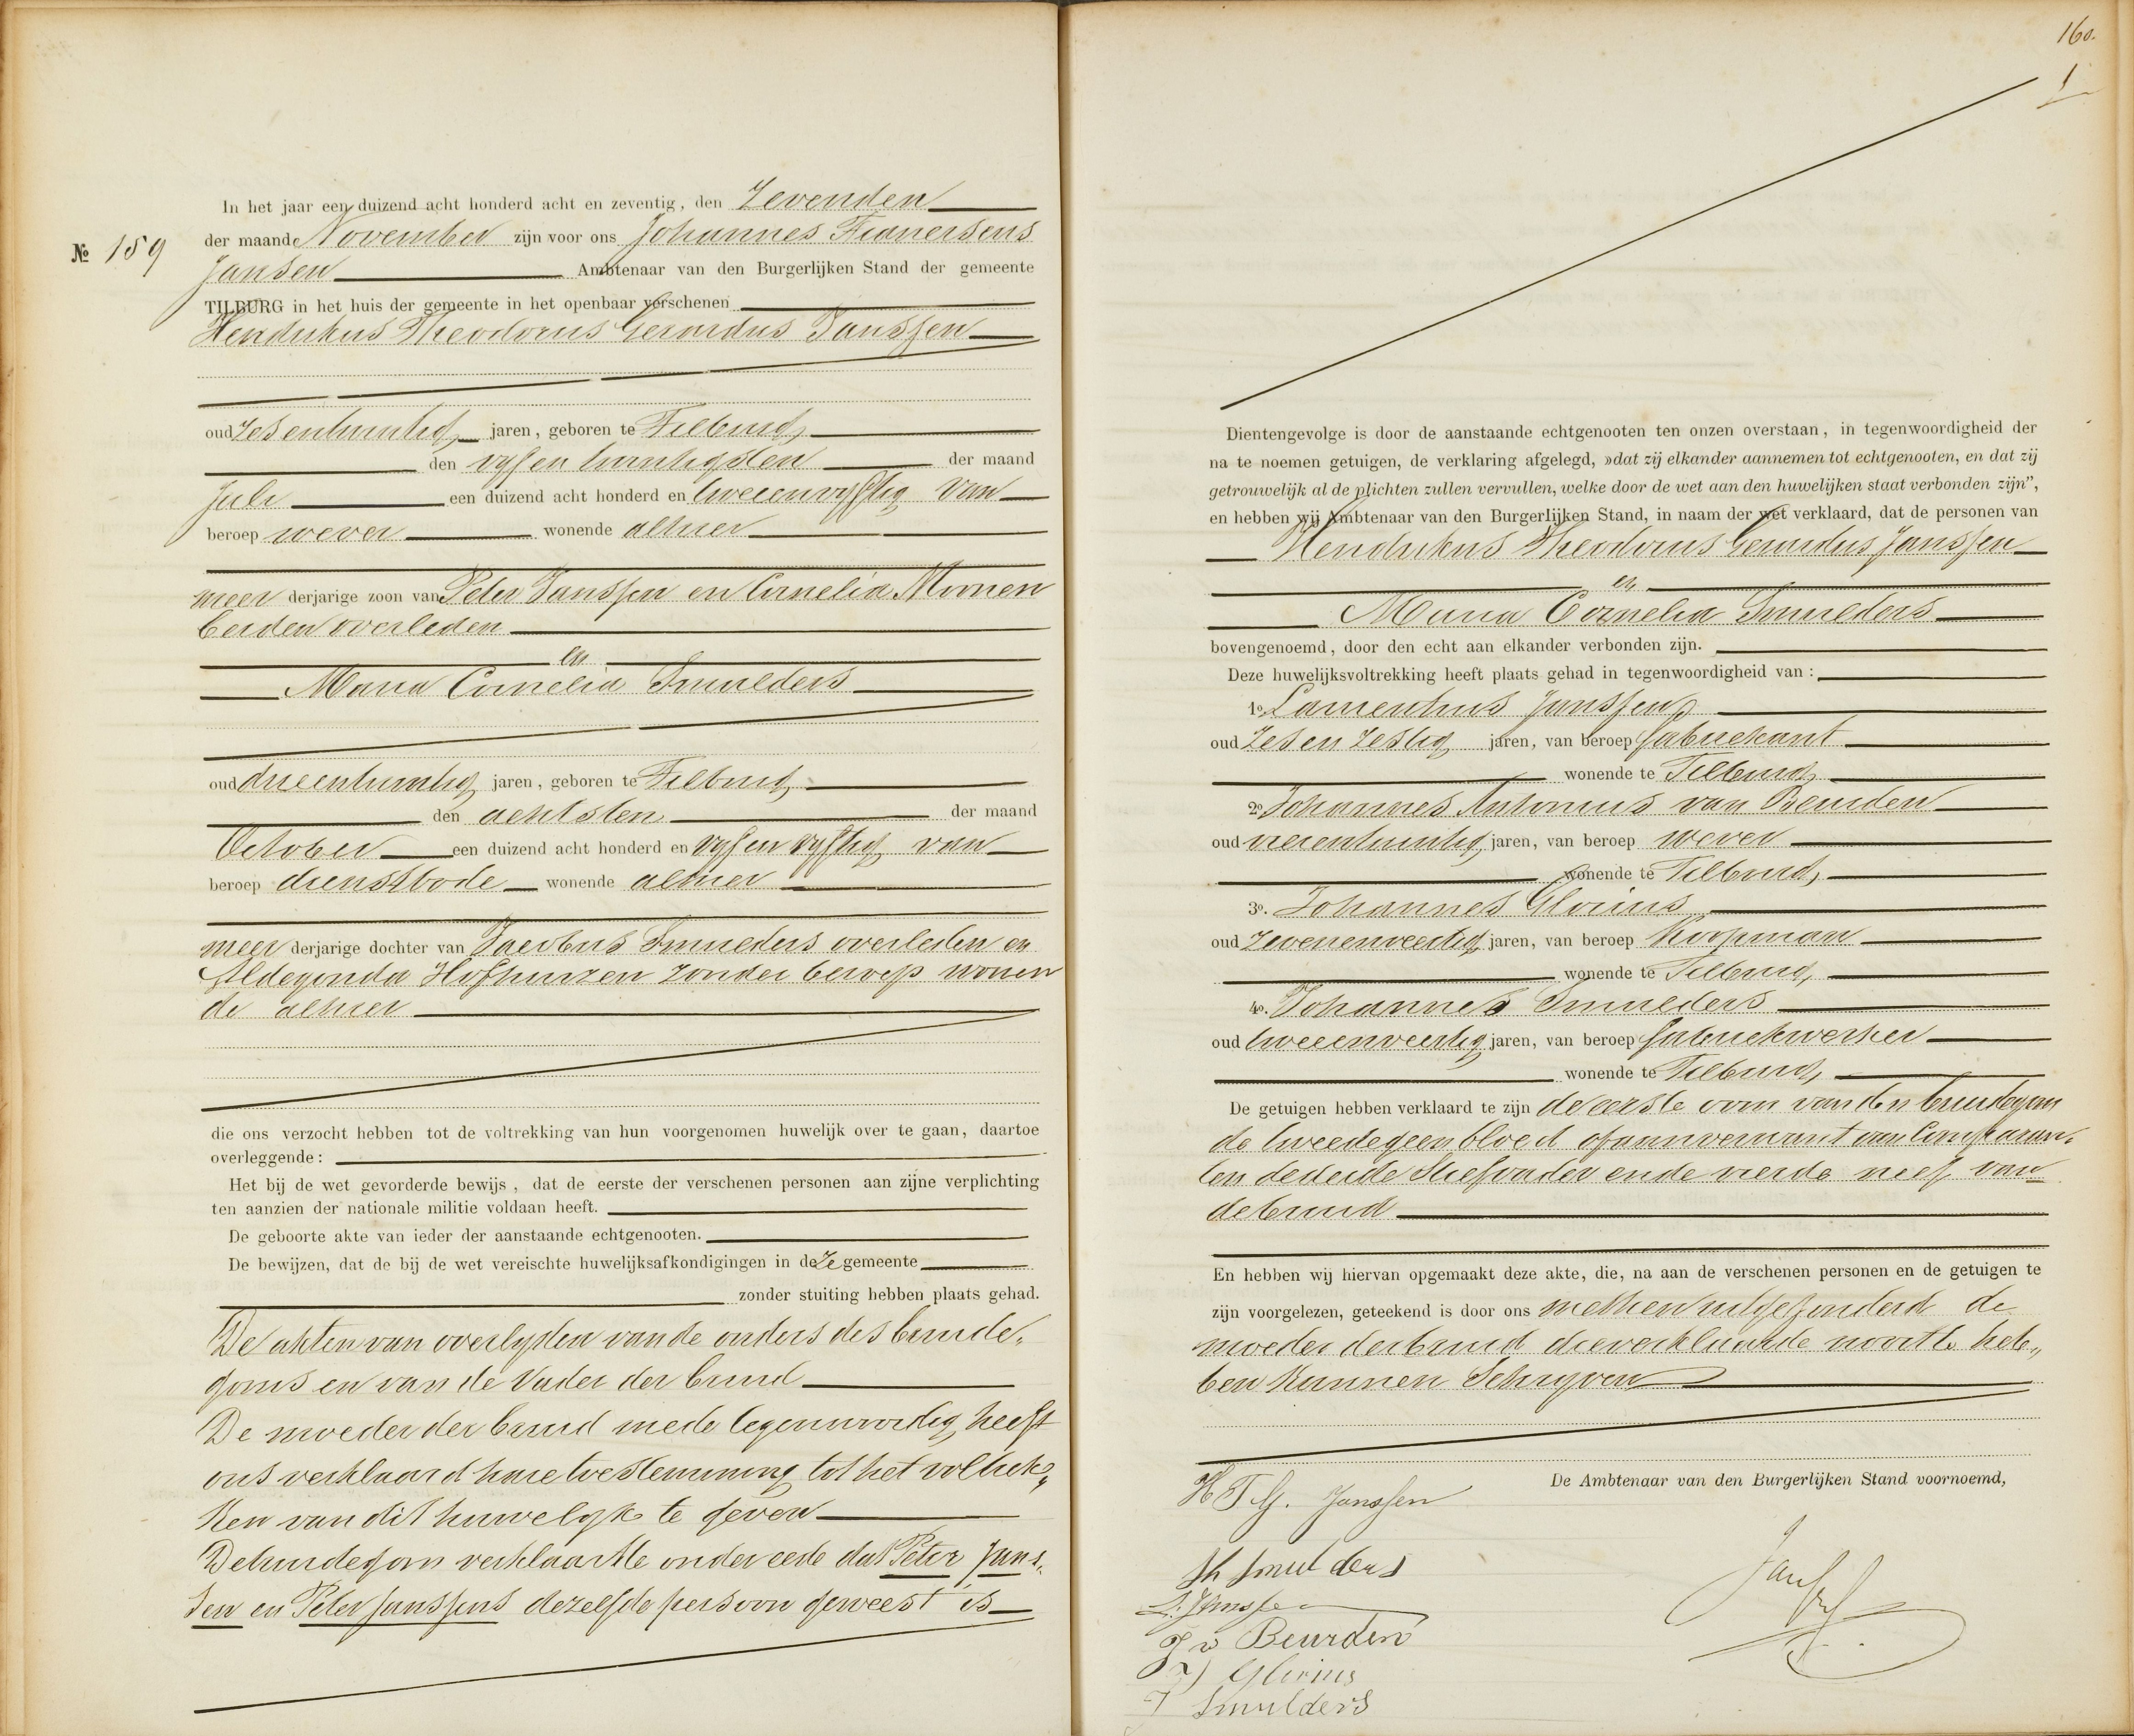 In het jaar een duizend acht honderd acht en zeventig, den Zevenden
No 159
der maand November zijn voor ons Johannes
Jansen Ambtenaar van den Burgerlijken Stand der gemeente
TILBURG in het huis der gemeente in het openbaar verschenen
Hendrikus Theodorus Gerardus Janssen
oud zes en twintig jaren, geboren te Tilburg,
den vyf en twintigsten der maand
Juli een duizend acht honderd en tweeenvyftig van
beroep wever wonende alhier
meer derjarige zoon van Peter Janssen en Cornelia Moonen
beiden overleden
en
Maria Cornelia Smulders
oud drieentwintig jaren, geboren te Tilburg,
den achtsten der maand
October een duizend acht honderd en vyf en vyftig van
beroep dienstbode wonende alhier
meer derjarige dochter van Jacobus Smulders overleden en
Aldegonda Hofhuizen zonder beroep wonen
de alhier
die ons verzocht hebben tot de voltrekking van hun voorgenomen huwelijk over te gaan, daartoe
overleggende:
Het bij de wet gevorderde bewijs, dat de eerste der verschenen personen aan zijne verplichting
ten aanzien der nationale militie voldaan heeft.
De geboorte akte van ieder der aanstaande echtgenooten.
De bewijzen, dat de bij de wet vereischte huwelijksafkondigingen in deze gemeente
zonder stuiting hebben plaats gehad.
De akten van overlyden van de ouders des bruide„
goms en van de Vader der bruid
De moeder der bruid mede tegenwoordig, heeft
ons verklaard hare toestemming tot het voltrek„
ken van dit huwelyk te geven
De bruidegom verklaarde onder eede dat Peter Jans„
sen en Peter Janssens dezelfde persoon geweest is
160.
1
Dientengevolge is door de aanstaande echtgenooten ten onzen overstaan, in tegenwoordigheid der
na te noemen getuigen, de verklaring afgelegd, »dat zij elkander aannemen tot echtgenooten, en dat zij
getrouwelijk al de plichten zullen vervullen, welke door de wet aan den huwelijken staat verbonden zijn",
en hebben wij Ambtenaar van den Burgerlijken Stand, in naam der wet verklaard, dat de personen van
Hendrikus Theodorus Gerardus Janssen
en
Maria Cornelia Smulders
bovengenoemd, door den echt aan elkander verbonden zijn.
Deze huwelijksvoltrekking heeft plaats gehad in tegenwoordigheid van:
1o. Laurentius Janssen,
oud zes en zestig jaren, van beroep fabriekant
wonende te Tilburg,
2o. Johannes Antonius van Beurden
oud vierentwintig jaren, van beroep wever
wonende te Tilburg,
3o. Johannes Glorius
oud zevenenveertig jaren, van beroep Koopman
wonende te Tilburg,
4o. Johannes Smulders
oud tweeenveertig jaren, van beroep fabriekwerker
wonende te Tilburg,
De getuigen hebben verklaard te zijn de eerste oom van den bruidegom
de tweede geen bloed of aanverwant van Comparan„
ten de derde Stiefvader en de vierde neef van
de bruid
En hebben wij hiervan opgemaakt deze akte, die, na aan de verschenen personen en de getuigen te
zijn voorgelezen, geteekend is door ons met hen uitgezonderd de
moeder der bruid die verklaarde nooit te heb„
ben kunnen Schryven
De Ambtenaar van den Burgerlijken Stand voornoemd,
H T G. Janssen
Jansen
Smulders
L. Janssen
J v Beurden
J Glorius
J Smulders